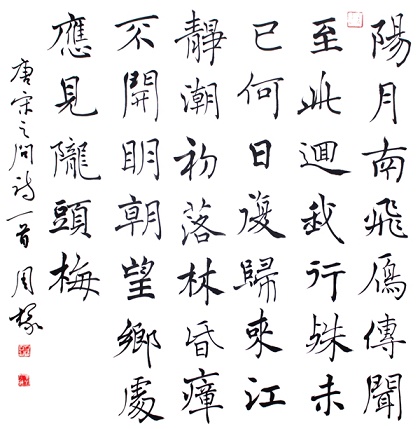 陽月南飛鴈傳聞
至此迴我行殊未
已何日復歸來江
靜潮初落林昏瘴
不開眀朝望鄉處
應見隴頭梅
唐宋之問詩一首 周